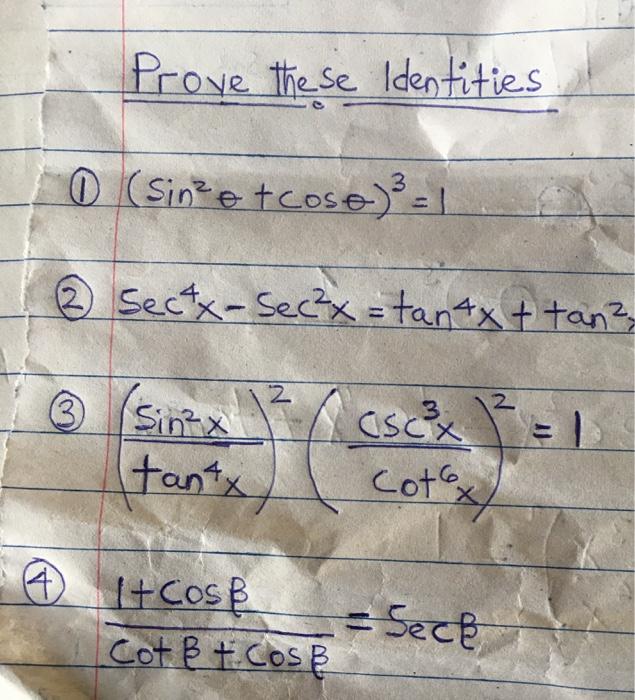 Prove these Identities
① (sin²θ + cosθ)³ = 1
② Sec⁴x - Sec²x = tan⁴x + tan²x
③ (sin²x / tan⁴x)² (csc³x / cot⁶x)² = 1
④ (1 + cosβ) / (cotβ + cosβ) = Secβ